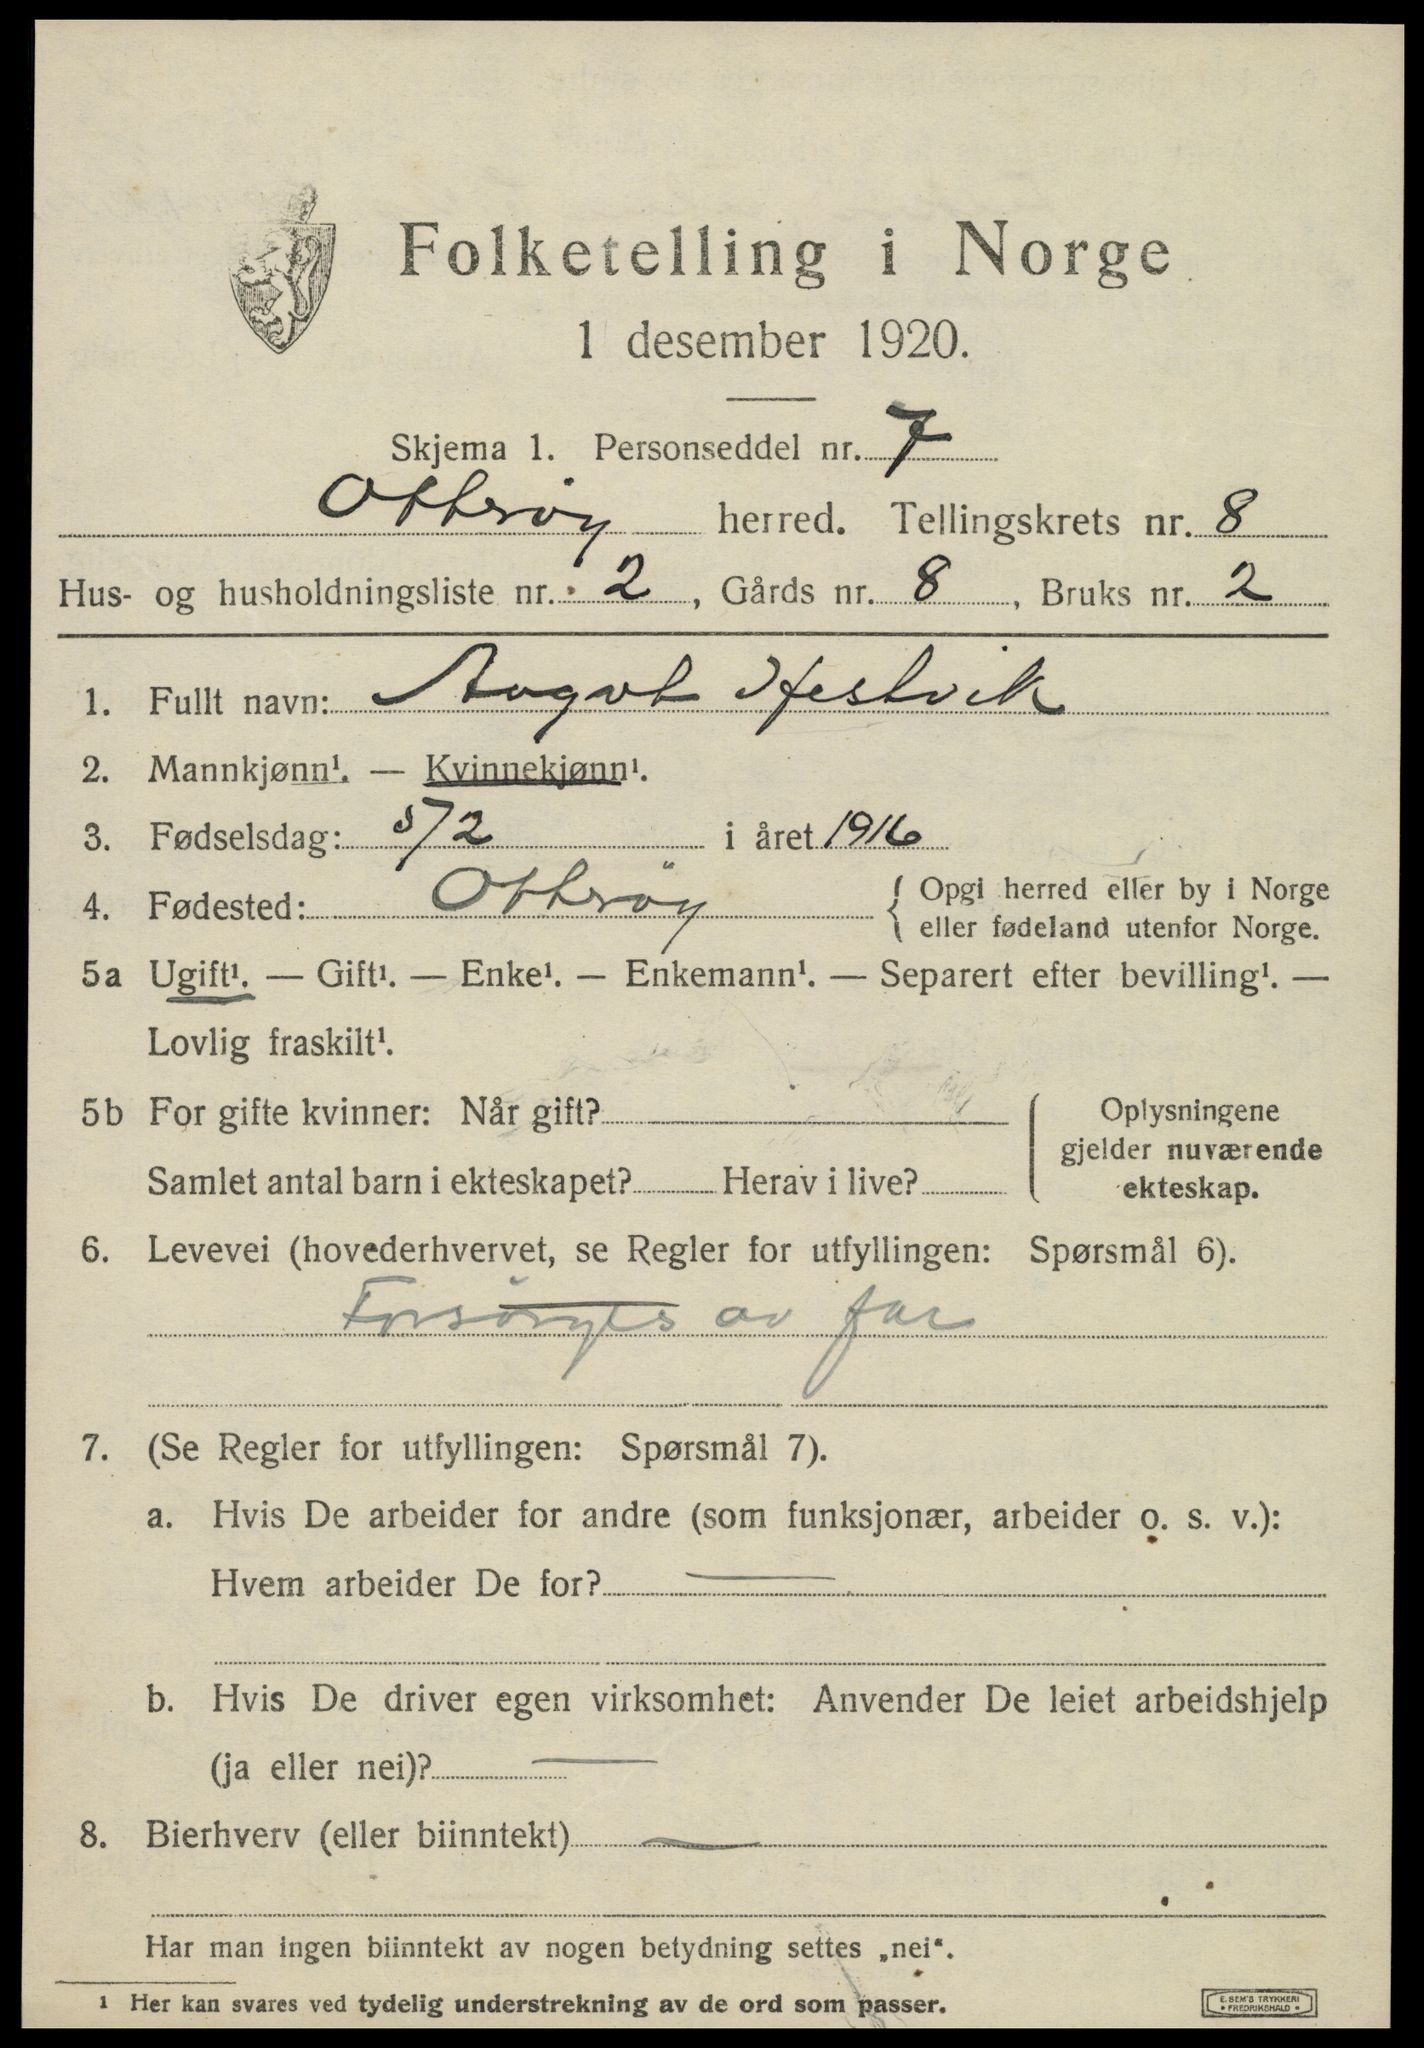 Folketelling i Norge
1 desember 1920.
Skjema 1. Personseddel nr. 7
Otterøy herred. Tellingskrets nr. 8
Hus- og husholdningsliste nr. 2, Gårds nr. 8, Bruks nr. 2
1. Fullt navn: Aagot Hestvik
2. Mannkjønn¹. — Kvinnekjønn¹.
3. Fødselsdag: 5/2 i året 1916
4. Fødested: Otterøy { Opgi herred eller by i Norge
eller fødeland utenfor Norge.
5a Ugift¹. — Gift¹. — Enke¹. — Enkemann¹. — Separert efter bevilling¹. —
Lovlig fraskilt¹.
5b For gifte kvinner: Når gift?
Samlet antal barn i ekteskapet? Herav i live?
Oplysningene
gjelder nuværende
ekteskap.
6. Levevei (hovederhvervet, se Regler for utfyllingen: Spørsmål 6).
Forsørges av far
7. (Se Regler for utfyllingen: Spørsmål 7).
a. Hvis De arbeider for andre (som funksjonær, arbeider o. s. v.):
Hvem arbeider De for? —
b. Hvis De driver egen virksomhet: Anvender De leiet arbeidshjelp
(ja eller nei)? —
8. Bierhverv (eller biinntekt) —
Har man ingen biinntekt av nogen betydning settes „nei“.
1 Her kan svares ved tydelig understrekning av de ord som passer.
E. SEM'S TRYKKERI
• FREDRIKSHALD •